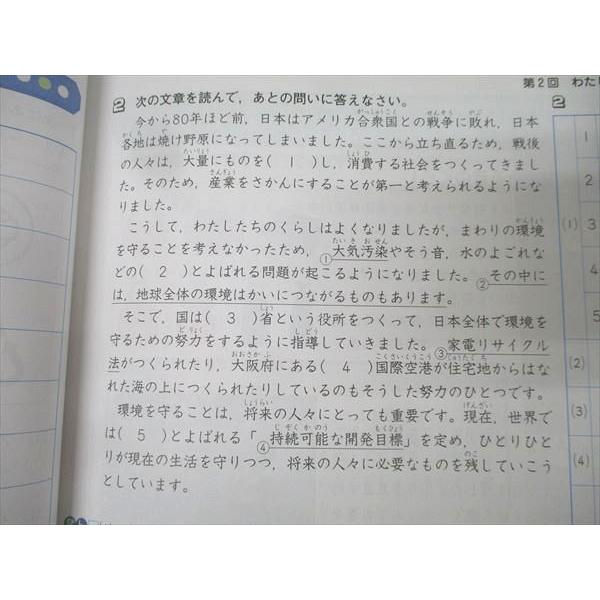 第2回 わたし
2 次の文章を読んで，あとの問いに答えなさい。
今から80年ほど前，日本はアメリカ合衆国との戦争に敗れ，日本
各地は焼け野原になってしまいました。ここから立ち直るため，戦後
の人々は，大量にものを( 1 )し，消費する社会をつくってきまし
た。そのため，産業をさかんにすることが第一と考えられるようにな
りました。
こうして，わたしたちのくらしはよくなりましたが，まわりの環境
を守ることを考えなかったため，①大気汚染やそう音，水のよごれな
どの( 2 )とよばれる問題が起こるようになりました。②その中に
は，地球全体の環境はかいにつながるものもあります。
そこで，国は( 3 )省という役所をつくって，日本全体で環境を
守るための努力をするように指導していきました。③家電リサイクル
法がつくられたり，大阪府にある( 4 )国際空港が住宅地からはな
れた海の上につくられたりしているのもそうした努力のひとつです。
環境を守ることは，将来の人々にとっても重要です。現在，世界で
は( 5 )とよばれる「④持続可能な開発目標」を定め，ひとりひと
りが現在の生活を守りつつ，将来の人々に必要なものを残していこう
としています。
2
(1)
1
2
3
4
5
(2)
(3)
(4)